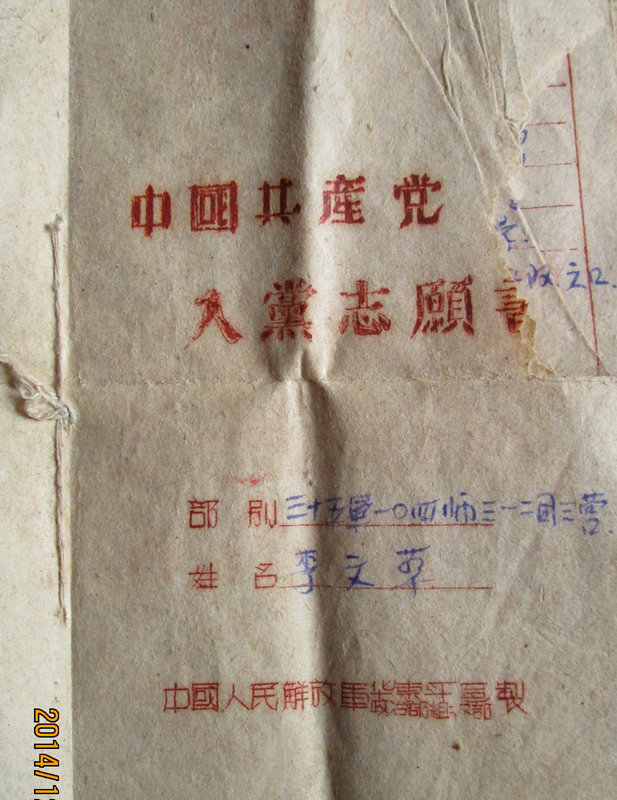 中國共産党
入黨志願書
部別 三十五軍一〇四师三一二团三营
姓名 李文华
中國人民解放軍華東軍區政治部組織部製
2014/1